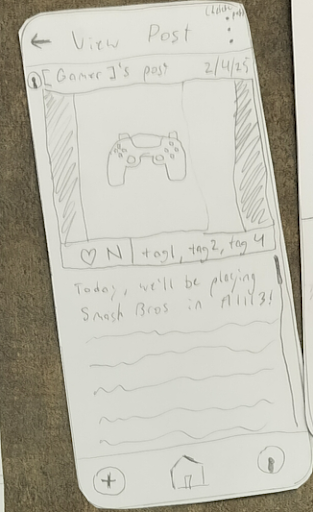 View Post
[Gamer]'s post 2/4/25
N tag1, tag2, tag 4
Today, we'll be playing
Smash Bros in